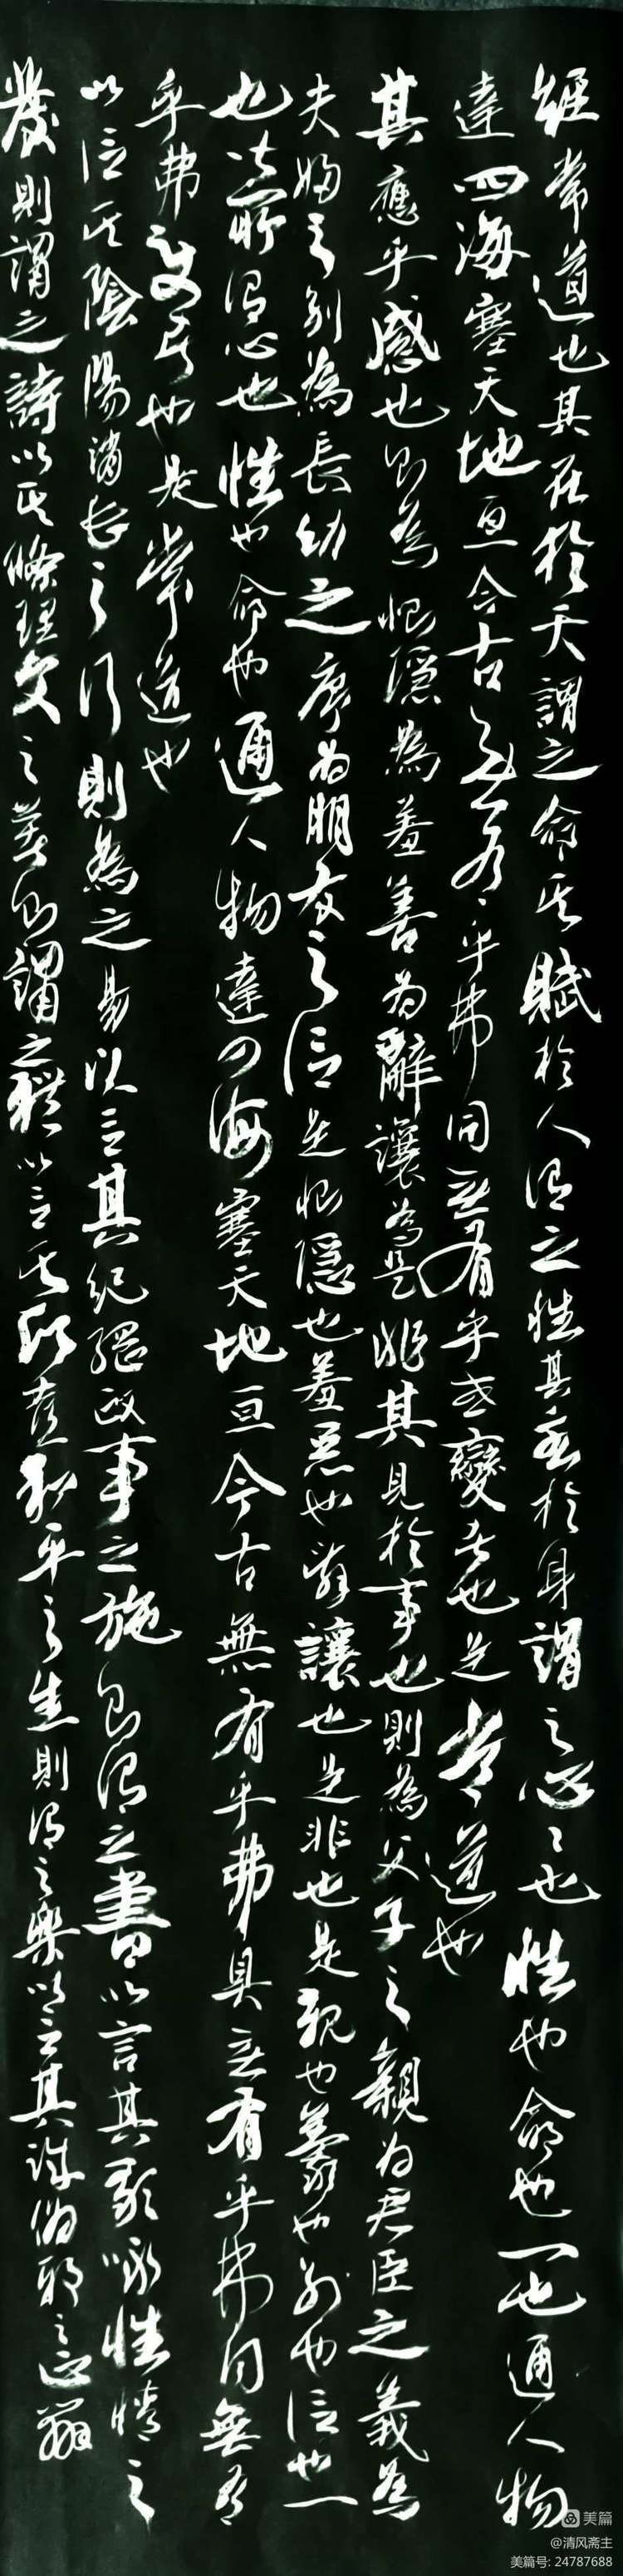 經常道也其在於天謂之命其賦於人謂之性其主於身謂之心々也性也命也一也通人物
達四海塞天地亘今古無有乎弗同無有乎或變者也是常道也
其應乎感也則為惻隱為羞善為辭讓為是非其見於事也則為父子之親為君臣之義為
夫婦之別為長幼之序為朋友之信是惻隱也羞惡也辭讓也是非也是親也義也別也信也一
也皆所謂心也性也命也通人物達四海塞天地亘今古無有乎弗具無有乎弗同無有
乎弗變者也是常道也
以言其陰陽消長之行則為之易以言其紀綱政事之施則謂之書以言其歌咏性情之
發則謂之詩以其條理文之著則謂之禮以言其欣喜和平之生則謂之樂以言其誠偽邪之正辯
美篇
@清风斋主
美篇号: 24787688